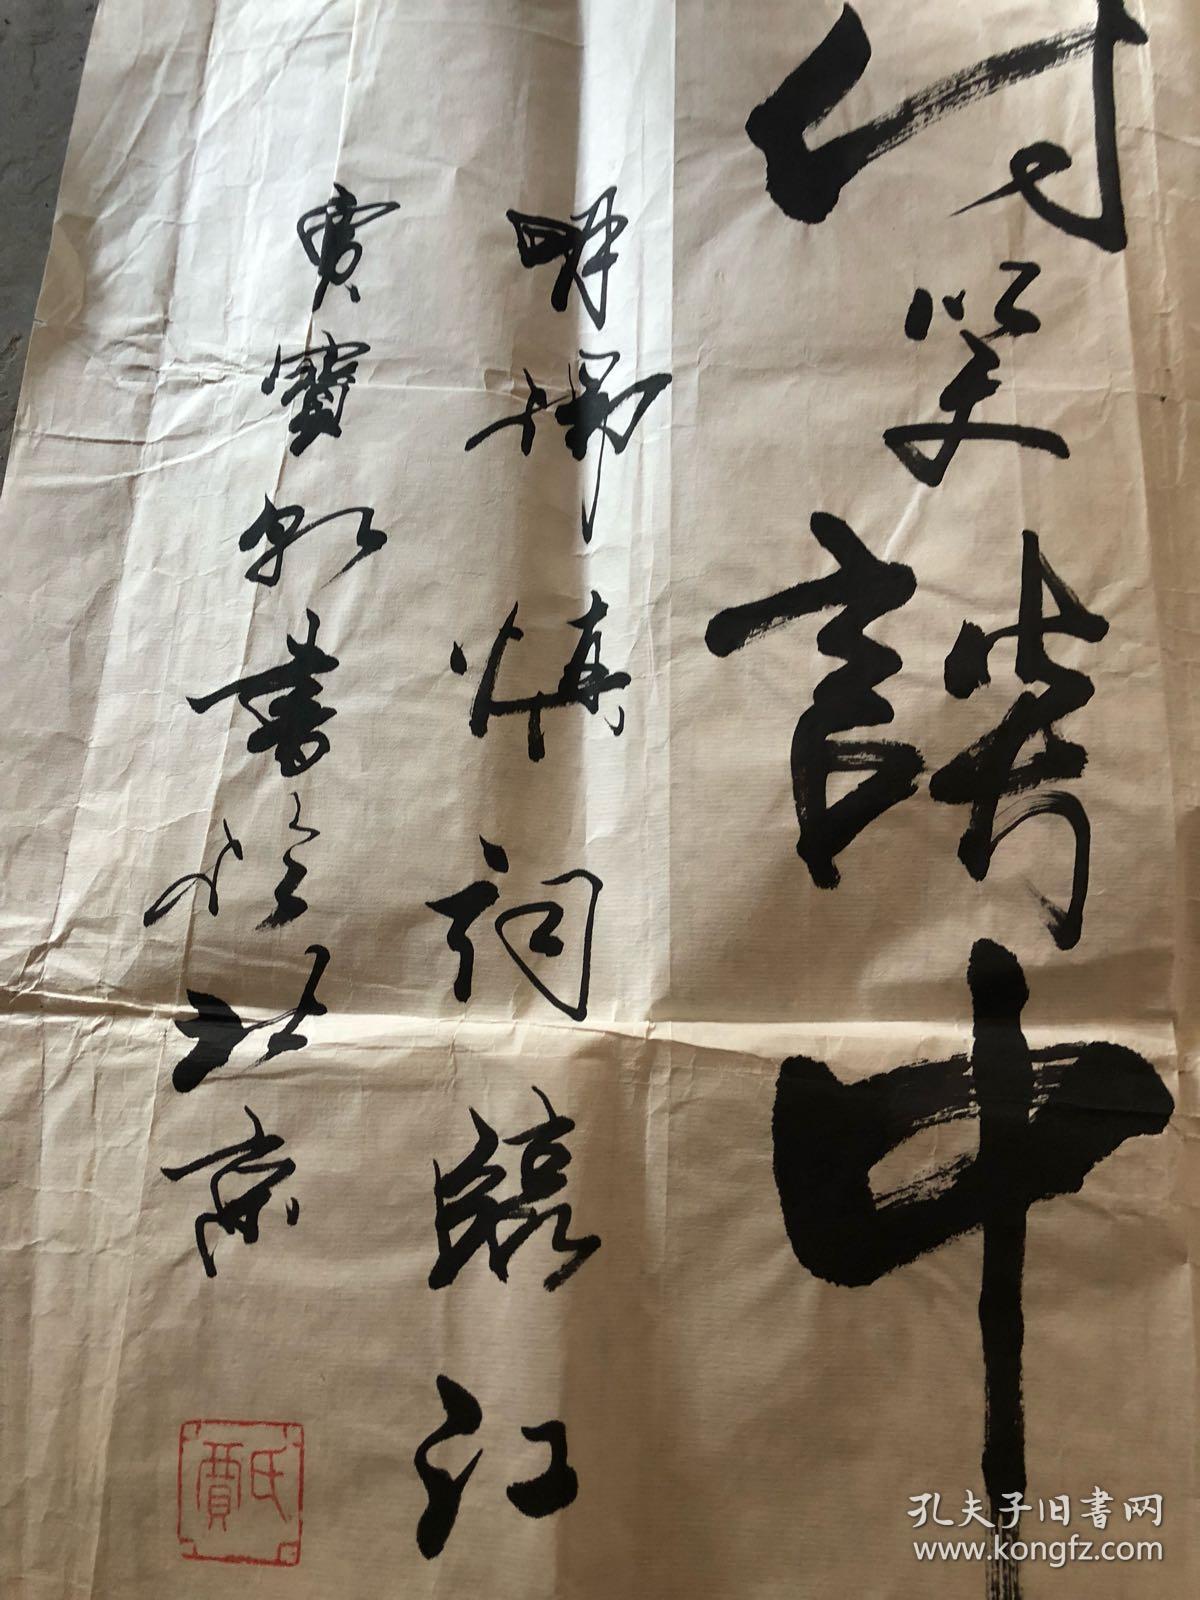 付笑談中
明楊慎詞臨江
賈寶
書於北京
賈氏
孔夫子旧书网
www.kongfz.com